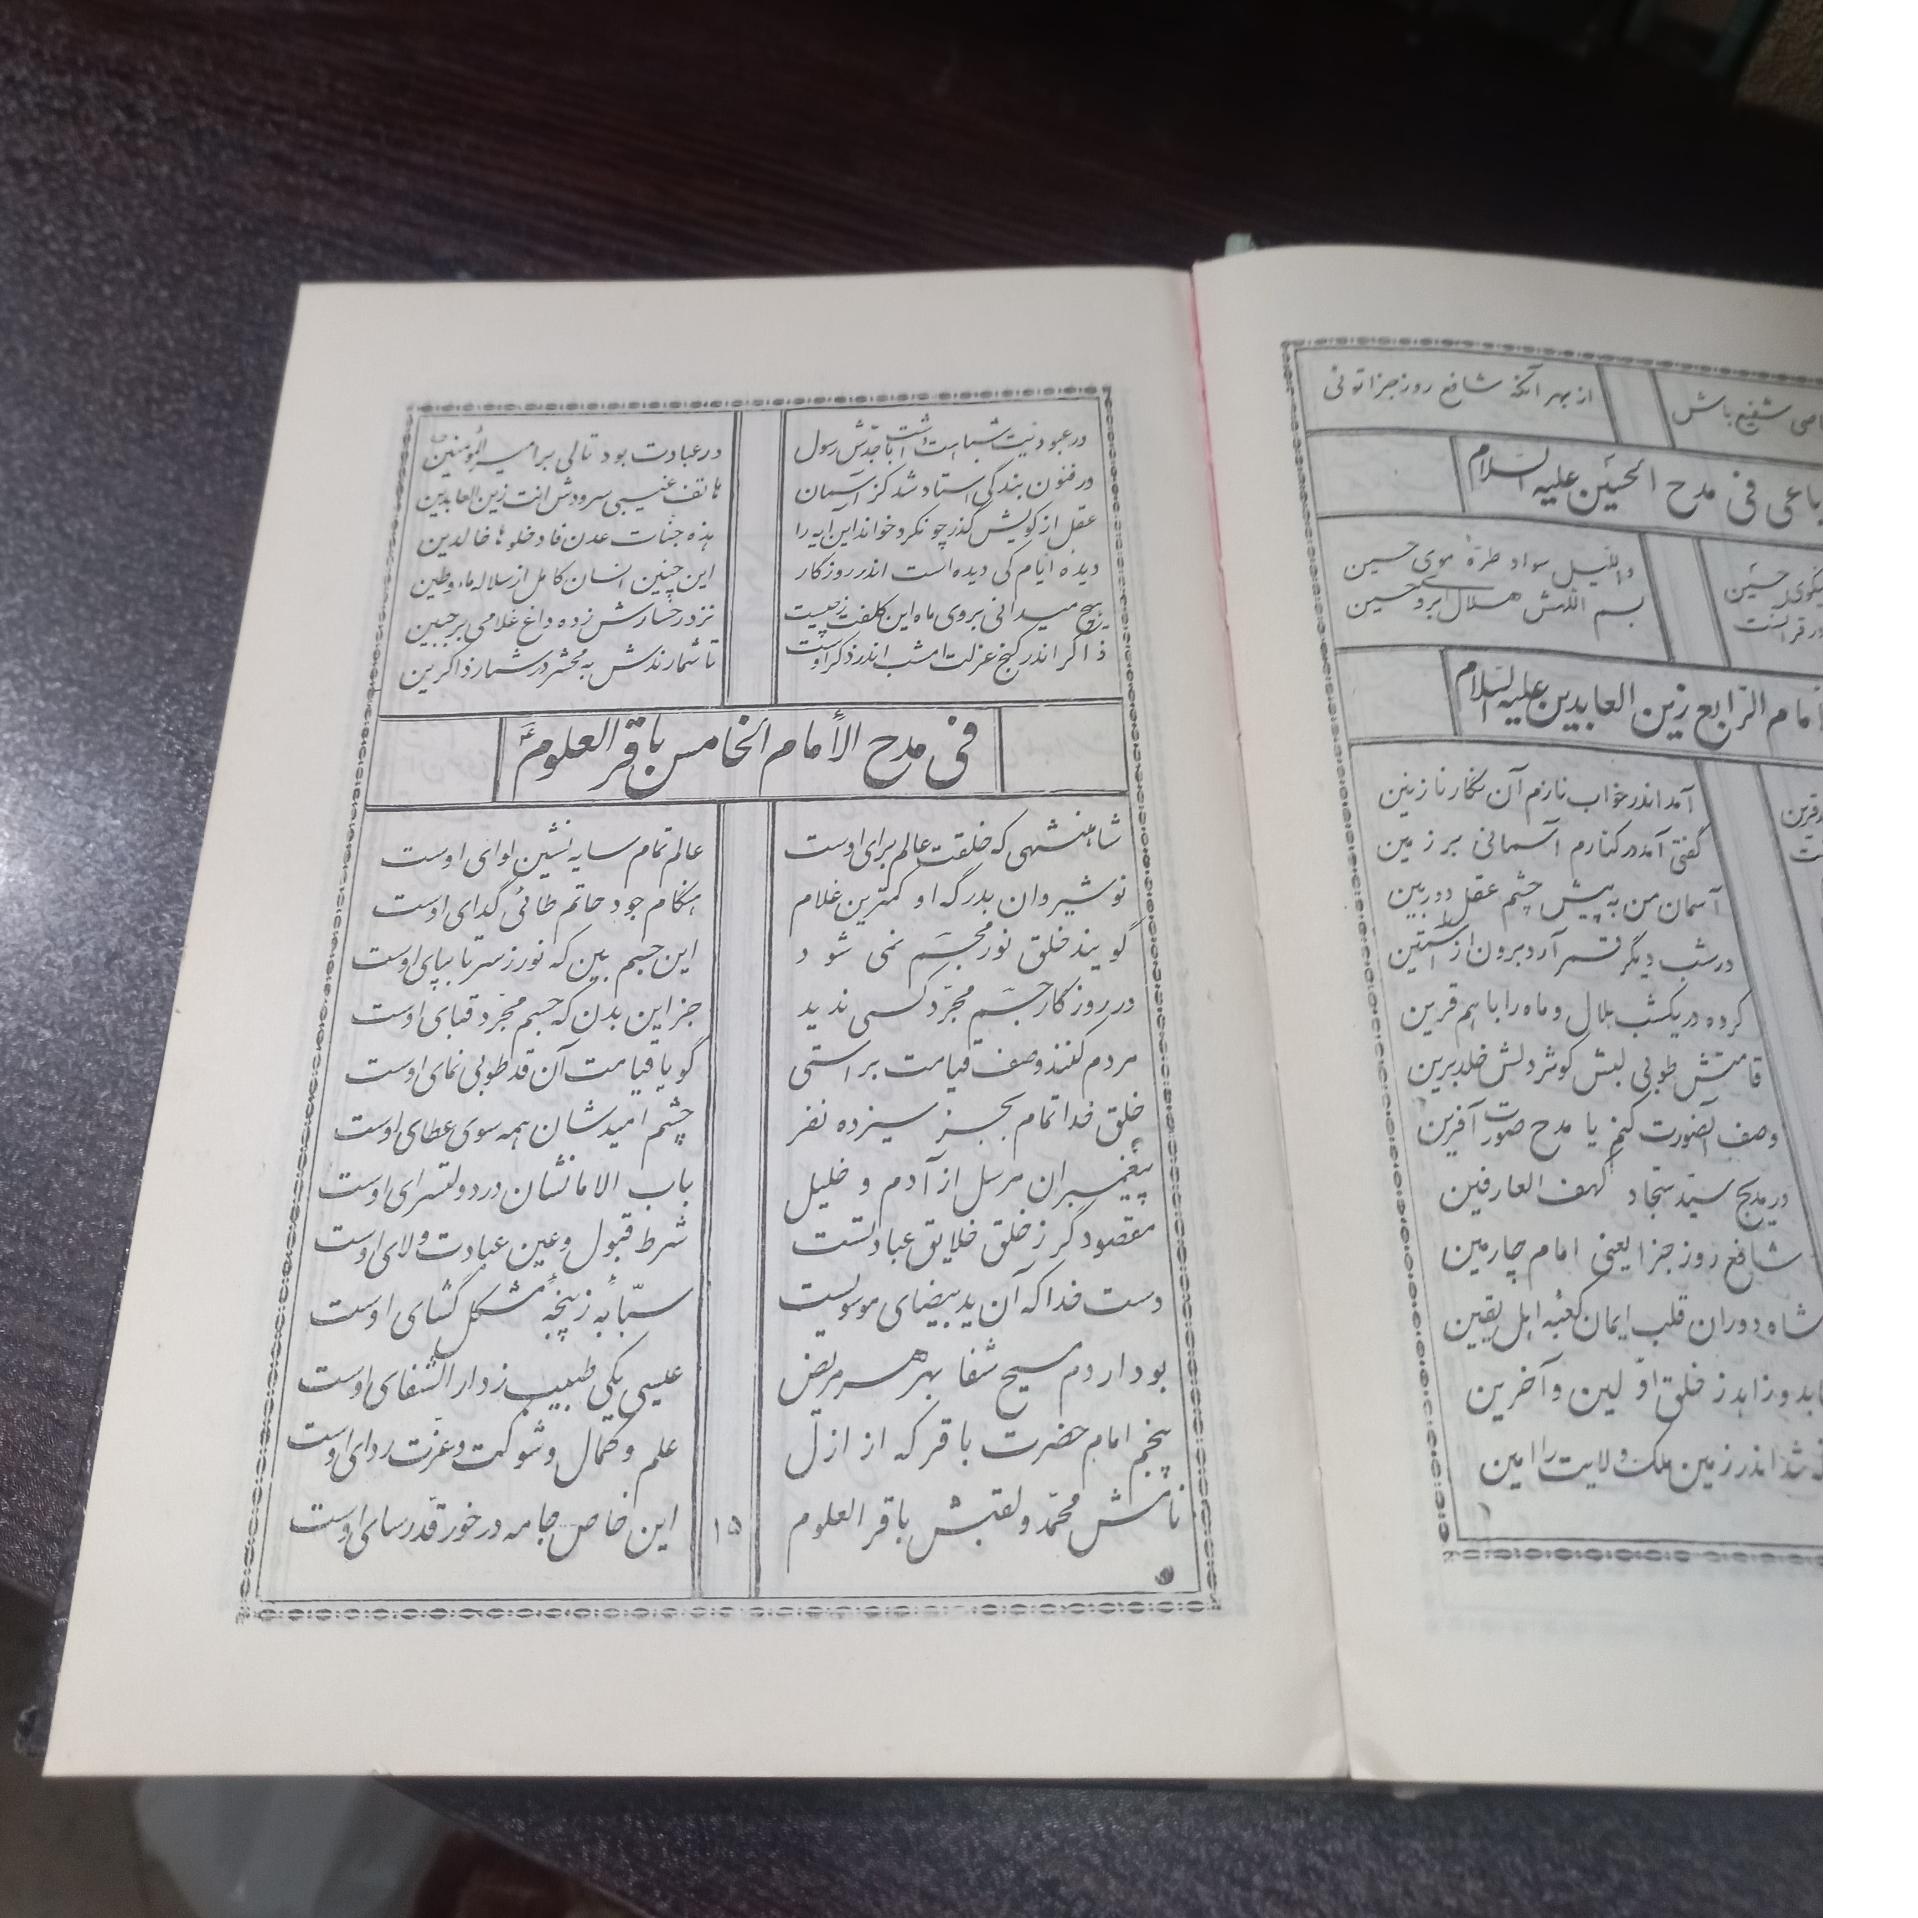 از بهر آنکه شافع روز جزا توئی
اصی شفیع باش
باعی فی مدح الحسین علیه السلام
واللیل سواد طرهٔ موی حسین
یکوی حسین
بسم اللهش هلال ابروی حسین
امام الرابع زین العابدین علیه السلام
آمد اندر خواب نازم آن نگار نازنین
گفتی آمد در کنارم آسمانی بر زمین
آسمان من به پیش چشم عقل دوربین
در شب دیگر قمر آرد برون از آستین
کرده در یکشب هلال و ماه را با هم قرین
قامتش طوبی لبش کوثر دلش خلد برین
وصف آنصورت کنم یا مدح صورت آفرین
در مدیح سید سجاد کهف العارفین
شافع روز جزا یعنی امام چارمین
شاه دوران قلب ایمان کعبه اهل یقین
ابد و زاهد ز خلق اولین و آخرین
شد اندر زمین ملک ولایت را امین
در عبودیت شباهت داشت با جدش رسول
در عبادت بود تالی بر امیرالمؤمنین
در فنون بندگی استاد شد کز آسمان
هاتف غیبی سرودش انت زین العابدین
عقل از کویش گذر چو نکرد خواند این آیه را
هذه جنات عدن فادخلوها خالدین
دیده ایام کی دیده است اندر روزگار
این چنین انسان کامل از سلاله ماء و طین
هیچ میدانی بروی ماه این کلفت ز چیست
نزد رخسارش زده داغ غلامی بر جبین
ذاکر اندر کنج عزلت امشب اندر ذکر اوست
تا شمارندش به محشر در شمار ذاکرین
فی مدح الأمام الخامس باقر العلوم ع
شاهنشهی که خلقت عالم برای اوست
عالم تمام سایه نشین لوای اوست
نوشیروان بدرگه او کمترین غلام
هنگام جود حاتم طائی گدای اوست
گویند خلق نور مجسم نمی شود
این جسم بین که نور ز سر تا بپای اوست
در روزگار جسم مجرد کسی ندید
جز این بدن که جسم مجرد قبای اوست
مردم کنند وصف قیامت براستی
گویا قیامت آن قد طوبی نمای اوست
خلق خدا تمام بجز سیزده نفر
چشم امیدشان همه سوی عطای اوست
پیغمبران مرسل از آدم و خلیل
باب الامانشان در دولتسرای اوست
مقصود گر ز خلق خلایق عبادتست
شرط قبول و عین عبادت ولای اوست
دست خدا که آن ید بیضای موسویست
سبابهٔ ز پنجهٔ مشکل گشای اوست
بودار دم مسیح شفا بهر هر مریض
عیسی یکی طبیب ز دار الشفای اوست
پنجم امام حضرت باقر که از ازل
علم و کمال و شوکت و عزت ردای اوست
نامش محمد و لقبش باقر العلوم
این خاص جامه در خور قد رسای اوست
۱۵